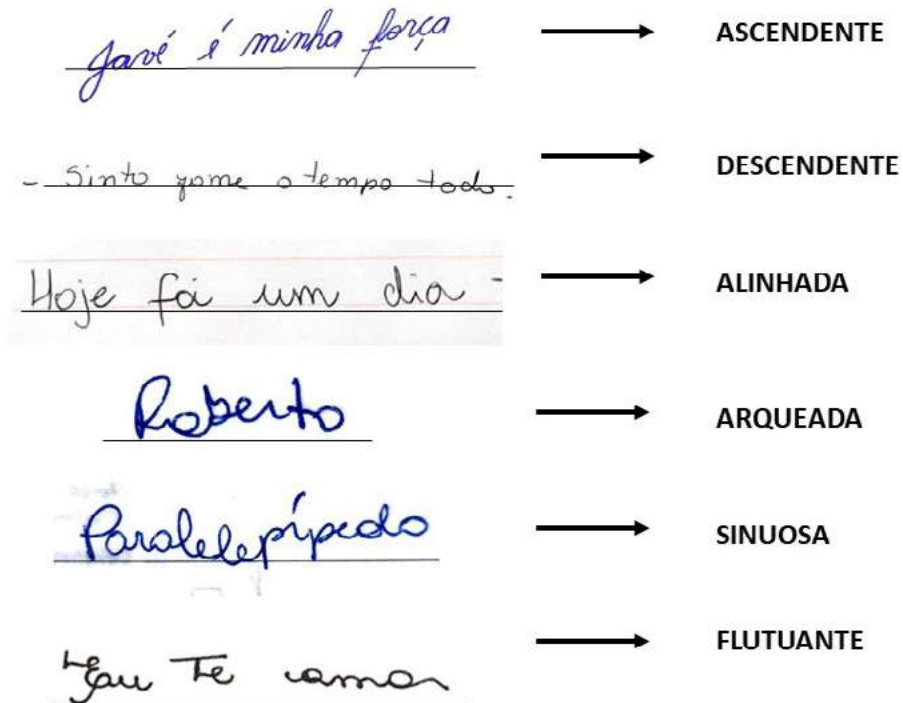 Javé é minha força ASCENDENTE
- Sinto fome o tempo todo. DESCENDENTE
Hoje foi um dia - ALINHADA
Roberto ARQUEADA
Paralelepípedo SINUOSA
Eu Te amo FLUTUANTE